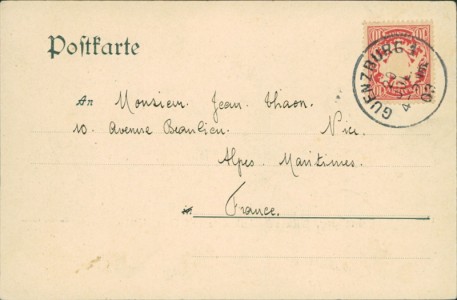 Postkarte
GUENZBURG
An Monsieur Jean Thaon.
10. Avenue Beaulieu. Nice.
Alpes. Maritimes.
in France.